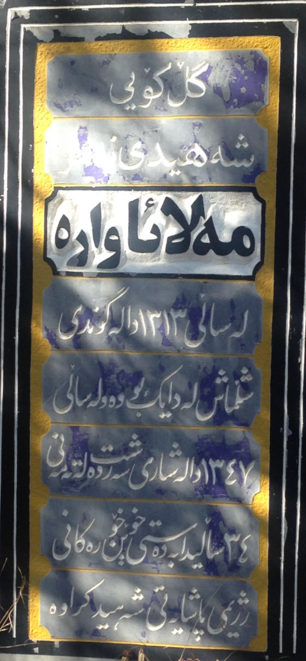 گڵکۆیی
شەهیدی نەمر
مەلائاوارە
لە ساڵی ١٣١٣دا لە گوندی
شڵماش لە دایک بووە ولە ساڵی
١٣٤٧دا لە شاری سەردەشت لە تەمەنی
٣٤ساڵیدا بەدەستی خوێن خۆرەکانی
رژیمی پاشایەتی شەهید کراوە